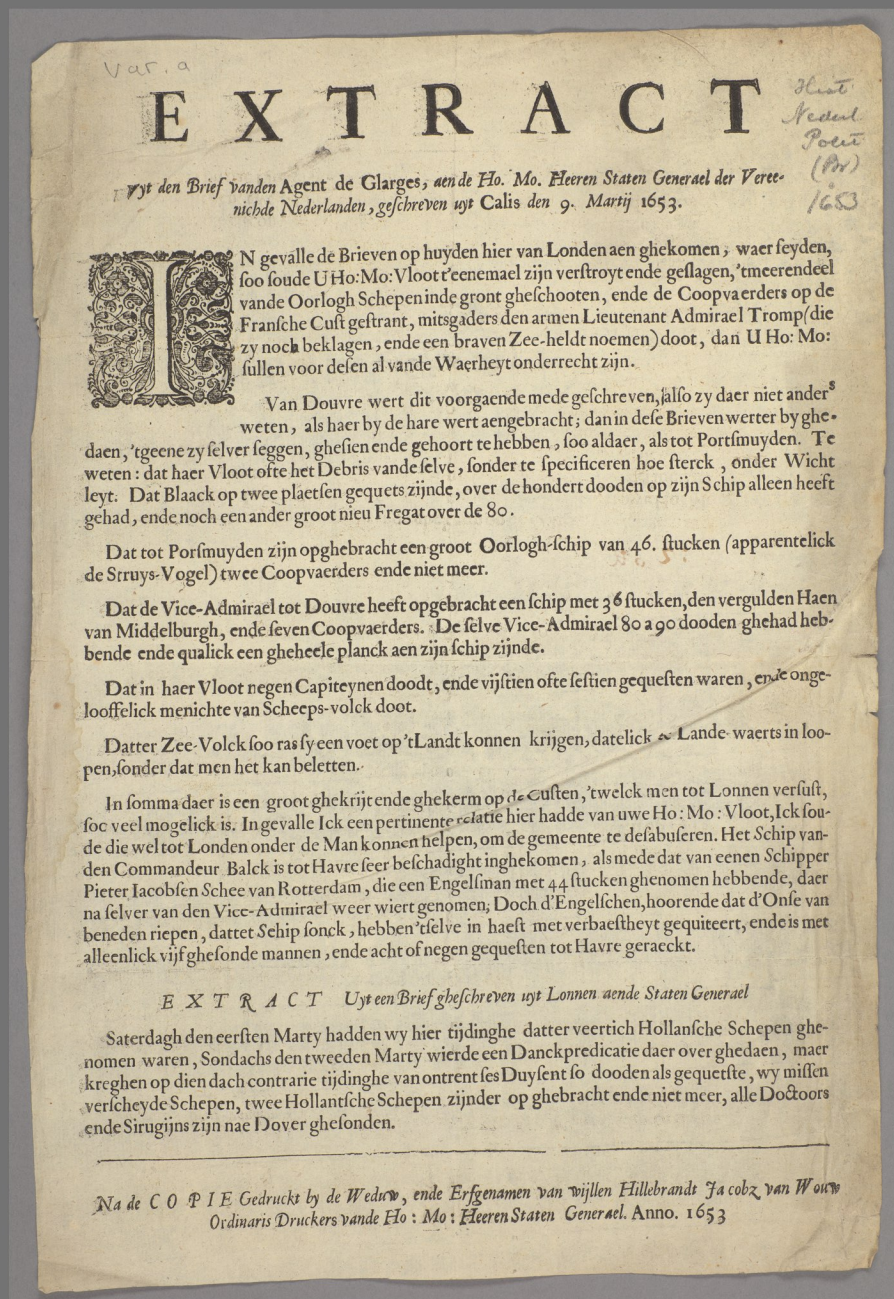 Var. a
EXTRACT
Hist
Nederl
Polit
(Br)
1653
uyt den Brief vanden Agent de Glarges, aende Ho. Mo. Heeren Staten Generael der Veree-
nichde Nederlanden, geschreven uyt Calis den 9. Martij 1653.
IN gevalle de Brieven op huyden hier van Londen aen ghekomen, waer seyden,
soo soude U Ho:Mo:Vloot t'eenemael zijn verstroyt ende geslagen, 'tmeerendeel
vande Oorlogh Schepen inde gront gheschooten, ende de Coopvaerders op de
Fransche Cust gestrant, mitsgaders den armen Lieutenant Admirael Tromp (die
zy noch beklagen, ende een braven Zee-heldt noemen) doot, dan U Ho: Mo:
sullen voor desen al vande Waerheyt onderrecht zijn.
Van Douvre wert dit voorgaende mede geschreven, also zy daer niet anders
weten, als haer by de hare wert aengebracht; dan in dese Brieven werter by ghe-
daen, 'tgeene zy selver seggen, ghesien ende gehoort te hebben, soo aldaer, als tot Portsmuyden. Te
weten: dat haer Vloot ofte het Debris vande selve, sonder te specificeren hoe sterck, onder Wicht
leyt. Dat Blaack op twee plaetsen gequets zijnde, over de hondert dooden op zijn Schip alleen heeft
gehad, ende noch een ander groot nieu Fregat over de 80.
Dat tot Porsmuyden zijn opghebracht een groot Oorlogh-schip van 46. stucken (apparentelick
de Struys-Vogel) twee Coopvaerders ende niet meer.
Dat de Vice-Admirael tot Douvre heeft opgebracht een schip met 36 stucken, den vergulden Haen
van Middelburgh, ende seven Coopvaerders. De selve Vice-Admirael 80 a 90 dooden ghehad heb-
bende ende qualick een gheheele planck aen zijn schip zijnde.
Dat in haer Vloot negen Capiteynen doodt, ende vijftien ofte sestien gequesten waren, ende onge-
looffelick menichte van Scheeps-volck doot.
Datter Zee-Volck soo ras sy een voet op 'tLandt konnen krijgen, datelick Lande-waerts in loo-
pen, sonder dat men het kan beletten.
In somma daer is een groot ghekrijt ende ghekerm op de Custen, 'twelck men tot Lonnen versust,
soc veel mogelick is. In gevalle Ick een pertinente relatie hier hadde van uwe Ho: Mo: Vloot, Ick sou-
de die wel tot Londen onder de Man konnen helpen, om de gemeente te desabuseren. Het Schip van-
den Commandeur Balck is tot Havre seer beschadight inghekomen, als mede dat van eenen Schipper
Pieter Iacobsen Schee van Rotterdam, die een Engelsman met 44 stucken ghenomen hebbende, daer
na selver van den Vice-Admirael weer wiert genomen; Doch d'Engelschen, hoorende dat d'Onse van
beneden riepen, dattet Schip sonck, hebben 'tselve in haest met verbaestheyt gequiteert, ende is met
alleenlick vijf ghesonde mannen, ende acht of negen gequesten tot Havre geraeckt.
EXTRACT Uyt een Brief gheschreven uyt Lonnen aende Staten Generael
Saterdagh den eersten Marty hadden wy hier tijdinghe datter veertich Hollansche Schepen ghe-
nomen waren, Sondachs den tweeden Marty wierde een Danckpredicatie daer over ghedaen, maer
kreghen op dien dach contrarie tijdinghe van ontrent ses Duysent so dooden als gequetste, wy missen
verscheyde Schepen, twee Hollantsche Schepen zijnder op ghebracht ende niet meer, alle Doctoors
ende Sirugijns zijn nae Dover ghesonden.
Na de COPIE Gedruckt by de Weduw, ende Erfgenamen van wijllen Hillebrandt Jacobz van Wouw
Ordinaris Druckers vande Ho: Mo: Heeren Staten Generael. Anno. 1653